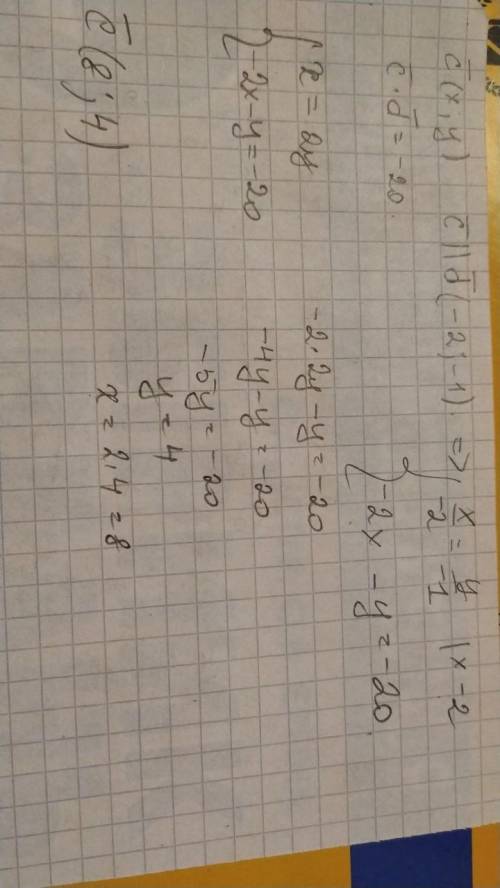 c̄(x, y) c̄ || d̄(-2; -1). => { x/-2 = y/-1 | x -2
c̄ · d̄ = -20. -2x - y = -20
{ x = 2y
-2x - y = -20
-2·2y - y = -20
-4y - y = -20
-5y = -20
y = 4
x = 2·4 = 8
c̄(8; 4)